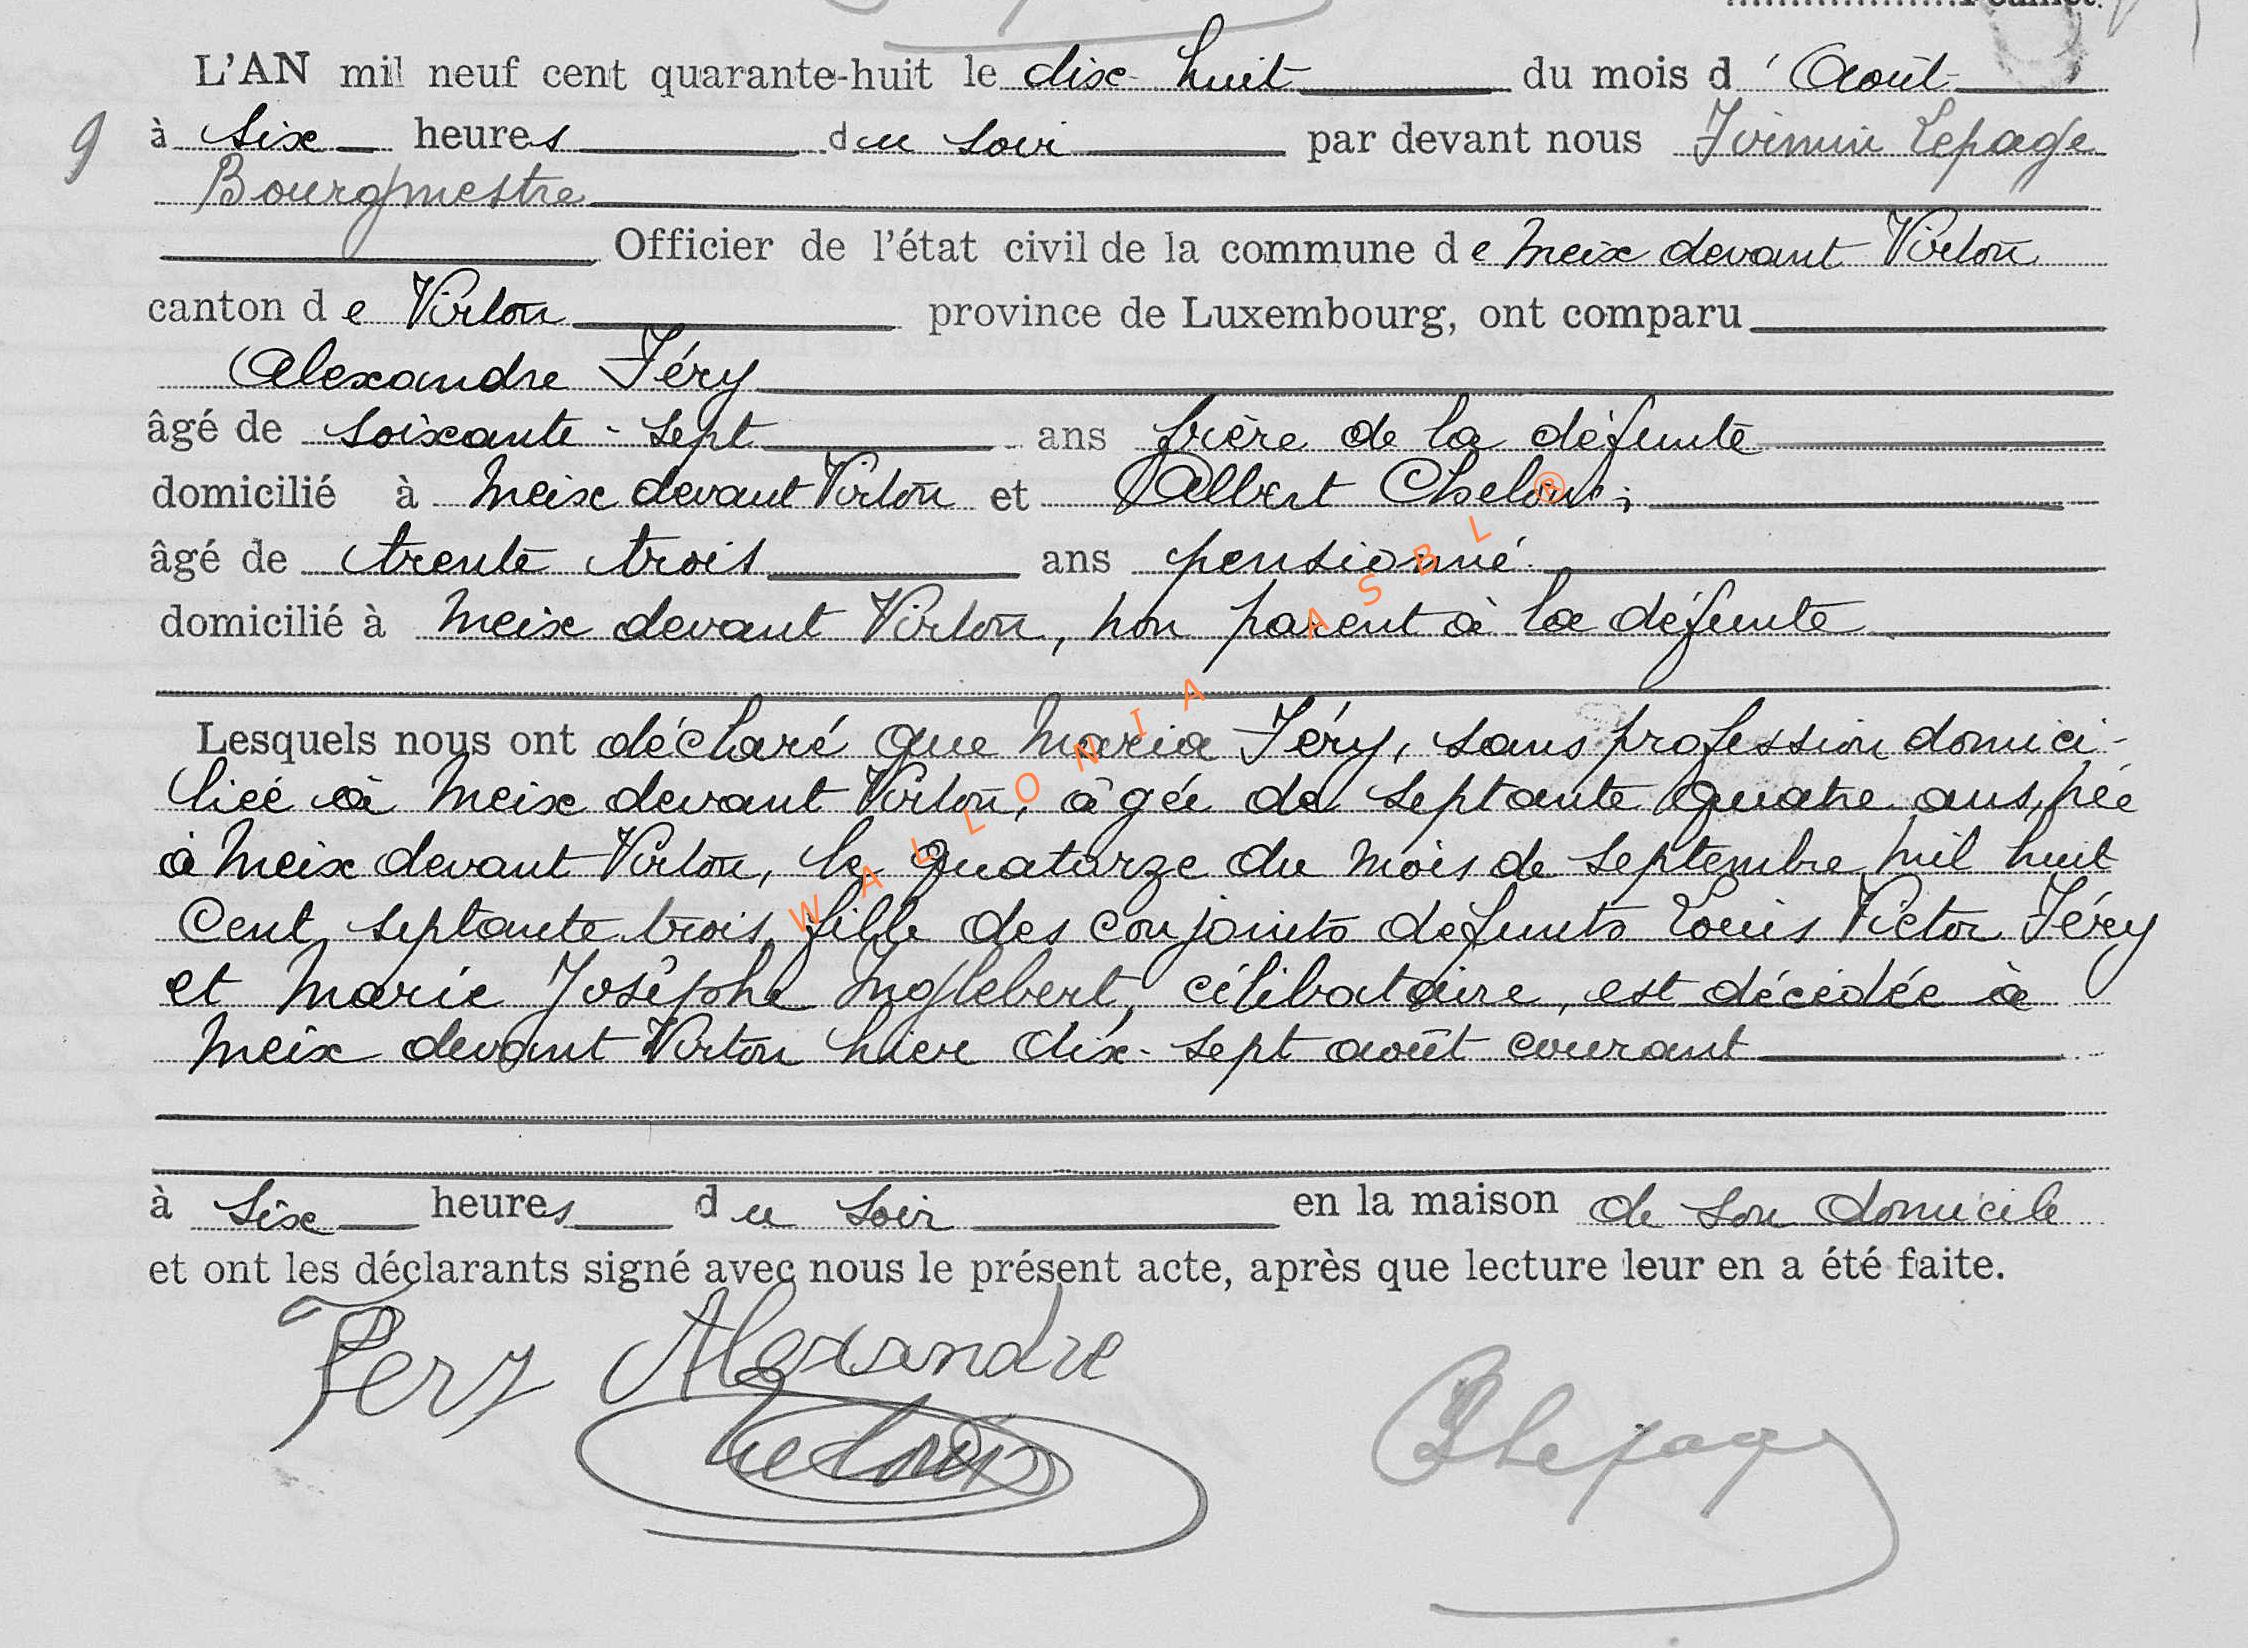 Feuillet.
L'AN mil neuf cent quarante-huit le dix-huit du mois d'Août
9 à six heures du soir par devant nous Firmin Lepage
Bourgmestre
Officier de l'état civil de la commune de Meix devant Virton
canton de Virton province de Luxembourg, ont comparu
Alexandre Féry
âgé de soixante-sept ans frère de la défunte
domicilié à Meix devant Virton et Albert
âgé de trente trois ans pensionné
domicilié à Meix devant Virton, non parent à la défunte
Lesquels nous ont déclaré que Maria Féry, sans profession domici-
liée à Meix devant Virton, âgée de septante quatre ans, née
à Meix devant Virton, le quatorze du mois de septembre mil huit
cent septante trois, fille des conjoints défunts Louis Victor Féry
et Marie Josèphe Inglebert, célibataire, est décédée à
Meix devant Virton hier dix-sept août courant
à six heures du soir en la maison de son domicile
et ont les déclarants signé avec nous le présent acte, après que lecture leur en a été faite.
Fery Alexandre
Lepage
WALLONIA ASBL ®